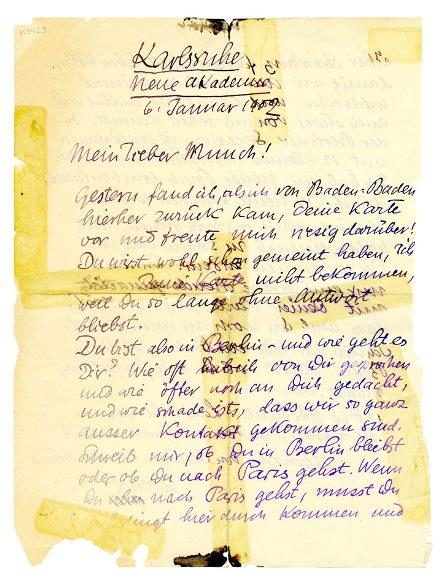 K3429
Karlsruhe
Neue Akademie
6. Januar
Mein lieber Munch!
Gestern fand ich, als ich von Baden-Baden
hierher zurück kam, Deine Karte
vor und freute mich riesig darüber!
Du wirst wohl schon gemeint haben, ich
nicht bekommen,
weil Du so lange ohne Antwort
bliebst.
Du bist also in Berlin - und wie geht es
Dir? Wie oft ich von Dir gesprochen
und wie öfter noch an Dich gedacht,
und wie schade ists, dass wir so ganz
ausser Kontakt gekommen sind.
Schreib mir, ob Du in Berlin bleibst
oder ob Du nach Paris gehst. Wenn
Du nach Paris gehst, musst Du
hier durch kommen und